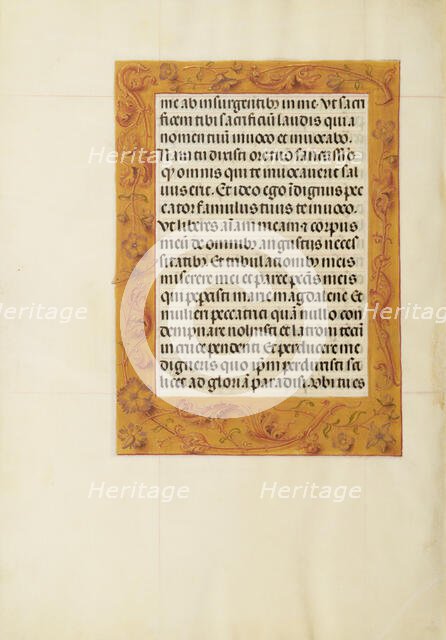 me ab insurgentibꝰ in me. Vt sacri
ficem tibi sacrificiū laudis qui a
nomen tuū inuoco et inuocabo.
Tu dixisti ore tuo
omnis qui te inuocauerit sal
uus erit. Et ideo ego īdignus pec
cator famulus tuus te inuoco.
Vt liberes aīam meam et corpus
meū de omnibꝰ angustijs neces
sitatibꝰ Et tribulationibꝰ meis
miserere mei et parce peccatis meis
qui pepercisti marie magdalene Et
mulieri peccatrici quā nullo con
dempnare noluisti et latroni tecū
in cruce pendenti Et perducere me
digneris quo ip̄m perduxisti sci
licet ad gloriā paradisi. vbi tu es
Heritage Heritage Heritage
Heritage Heritage Heritage
Heritage Heritage Heritage